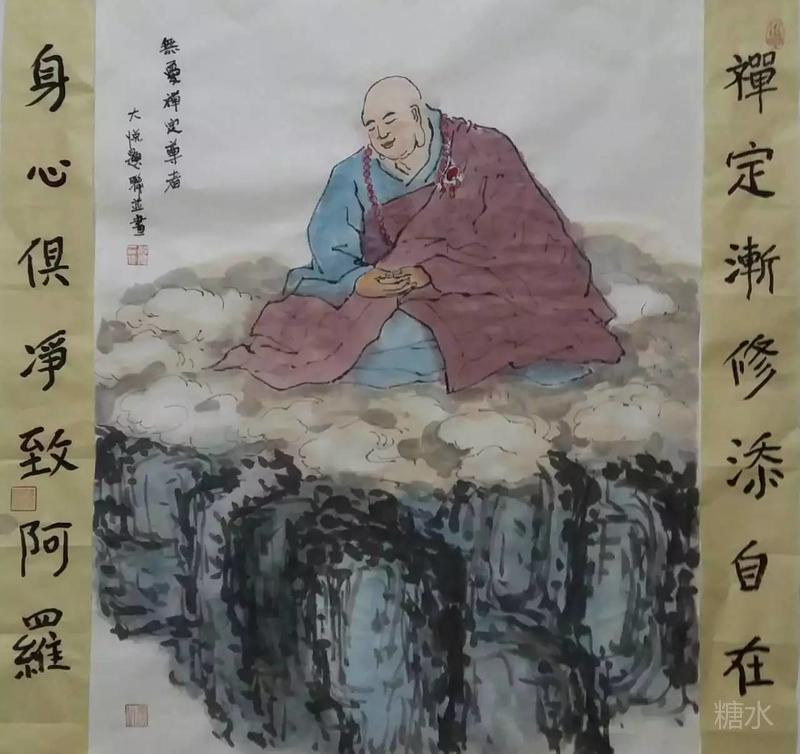 禪定漸修添自在
無憂禪定尊者
大悦聯並畫
身心俱凈致阿羅
糖水